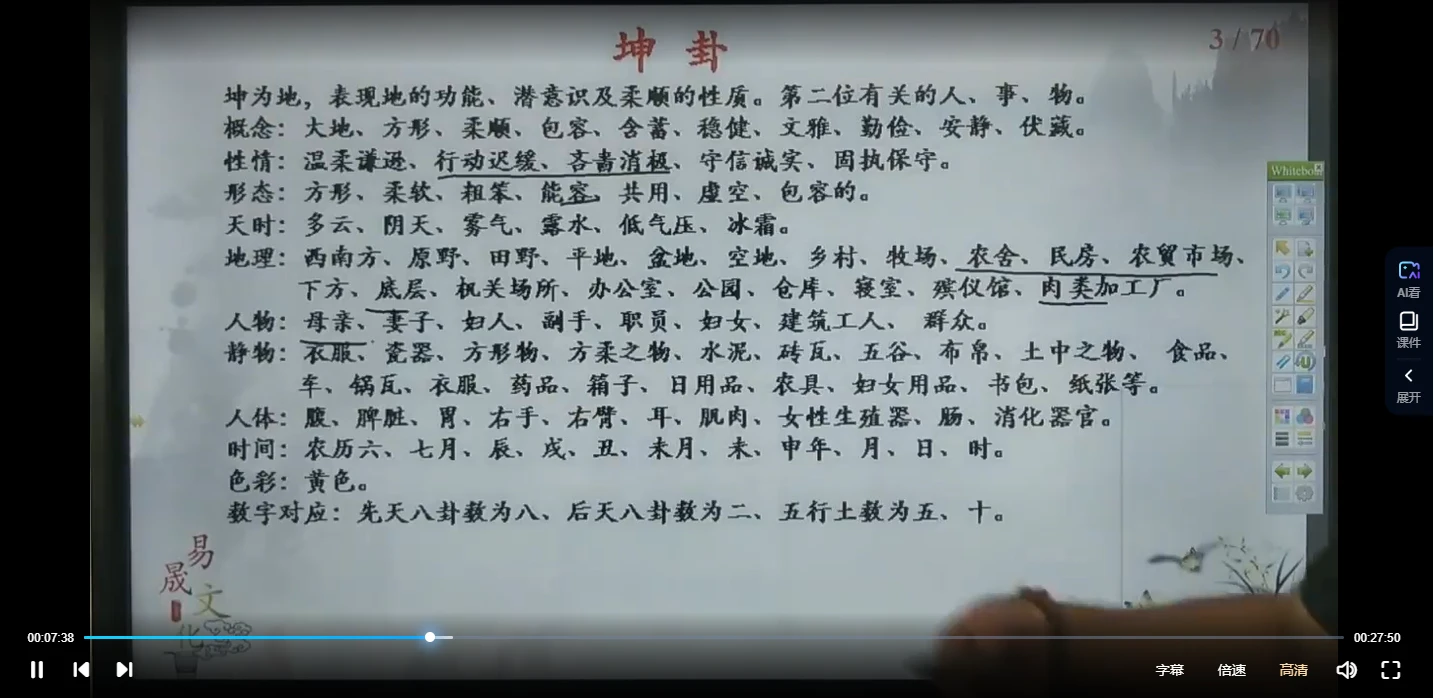 坤 卦
3 / 70
坤为地，表现地的功能、潜意识及柔顺的性质。第二位有关的人、事、物。
概念：大地、方形、柔顺、包容、含蓄、稳健、文雅、勤俭、安静、伏藏。
性情：温柔谦逊、行动迟缓、吝啬消极、守信诚实、固执保守。
形态：方形、柔软、粗笨、能容、共用、虚空、包容的。
天时：多云、阴天、雾气、露水、低气压、冰霜。
地理：西南方、原野、田野、平地、盆地、空地、乡村、牧场、农舍、民房、农贸市场、
下方、底层、机关场所、办公室、公园、仓库、寝室、殡仪馆、肉类加工厂。
人物：母亲、妻子、妇人、副手、职员、妇女、建筑工人、群众。
静物：衣服、瓷器、方形物、方柔之物、水泥、砖瓦、五谷、布帛、土中之物、食品、
车、锅瓦、衣服、药品、箱子、日用品、农具、妇女用品、书包、纸张等。
人体：腹、脾脏、胃、右手、右臂、耳、肌肉、女性生殖器、肠、消化器官。
时间：农历六、七月、辰、戌、丑、未月、未、申年、月、日、时。
色彩：黄色。
数字对应：先天八卦数为八、后天八卦数为二、五行土数为五、十。
易
晟
文
化
AI看
课件
展开
00:07:38
00:27:50
字幕
倍速
高清